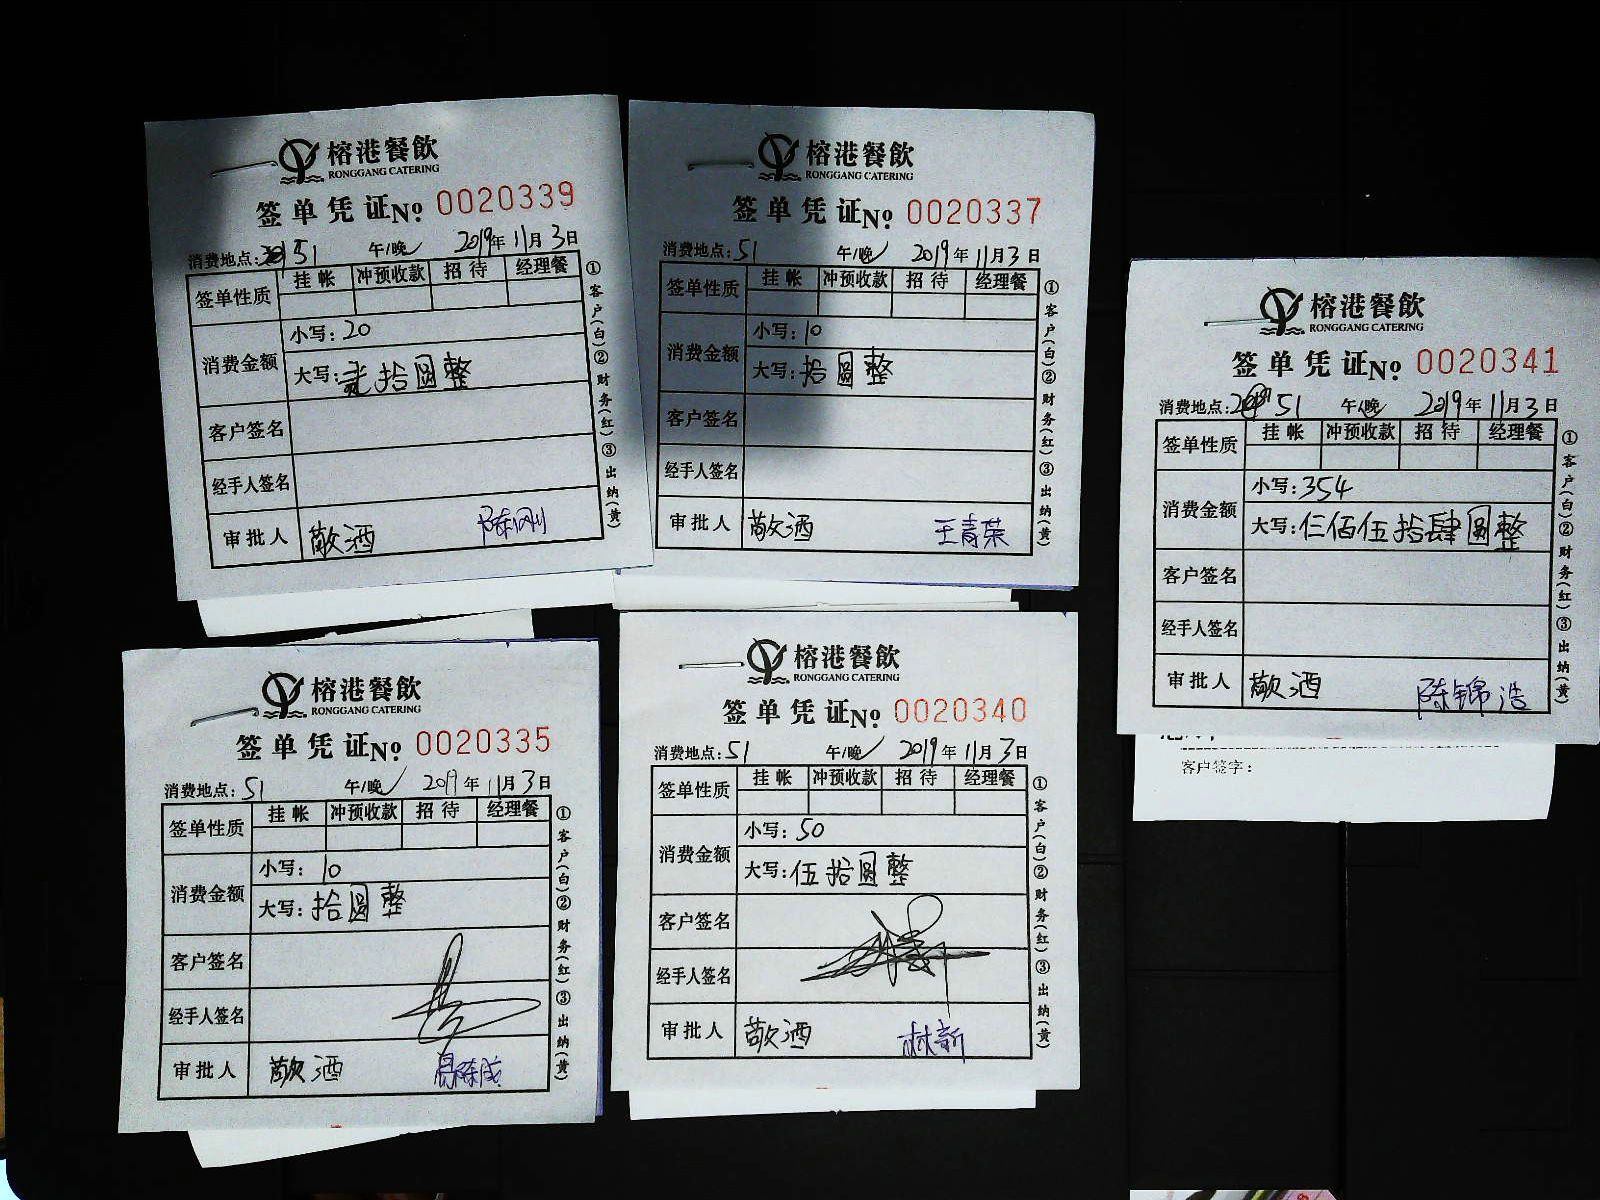 榕港餐飲
RONGGANG CATERING
签单凭证No 0020339
消费地点: 51 午/晚✓ 2019年11月3日
签单性质 挂帐 冲预收款 招待 经理餐
消费金额 小写: 20
大写: 贰拾圆整
客户签名
经手人签名
审批人 敬酒 陈刚
①客户(白)②财务(红)③出纳(黄)
榕港餐飲
RONGGANG CATERING
签单凭证No 0020337
消费地点: 51 午/晚✓ 2019年11月3日
签单性质 挂帐 冲预收款 招待 经理餐
消费金额 小写: 10
大写: 拾圆整
客户签名
经手人签名
审批人 敬酒 王青荣
①客户(白)②财务(红)③出纳(黄)
榕港餐飲
RONGGANG CATERING
签单凭证No 0020341
消费地点: 51 午/晚✓ 2019年11月3日
签单性质 挂帐 冲预收款 招待 经理餐
消费金额 小写: 354
大写: 仨佰伍拾肆圆整
客户签名
经手人签名
审批人 敬酒 陈锦浩
①客户(白)②财务(红)③出纳(黄)
客户签字:
榕港餐飲
RONGGANG CATERING
签单凭证No 0020335
消费地点: 51 午/晚✓ 2019年11月3日
签单性质 挂帐 冲预收款 招待 经理餐
消费金额 小写: 10
大写: 拾圆整
客户签名
经手人签名
审批人 敬酒
①客户(白)②财务(红)③出纳(黄)
榕港餐飲
RONGGANG CATERING
签单凭证No 0020340
消费地点: 51 午/晚✓ 2019年11月3日
签单性质 挂帐 冲预收款 招待 经理餐
消费金额 小写: 50
大写: 伍拾圆整
客户签名
经手人签名
审批人 敬酒 林新
①客户(白)②财务(红)③出纳(黄)